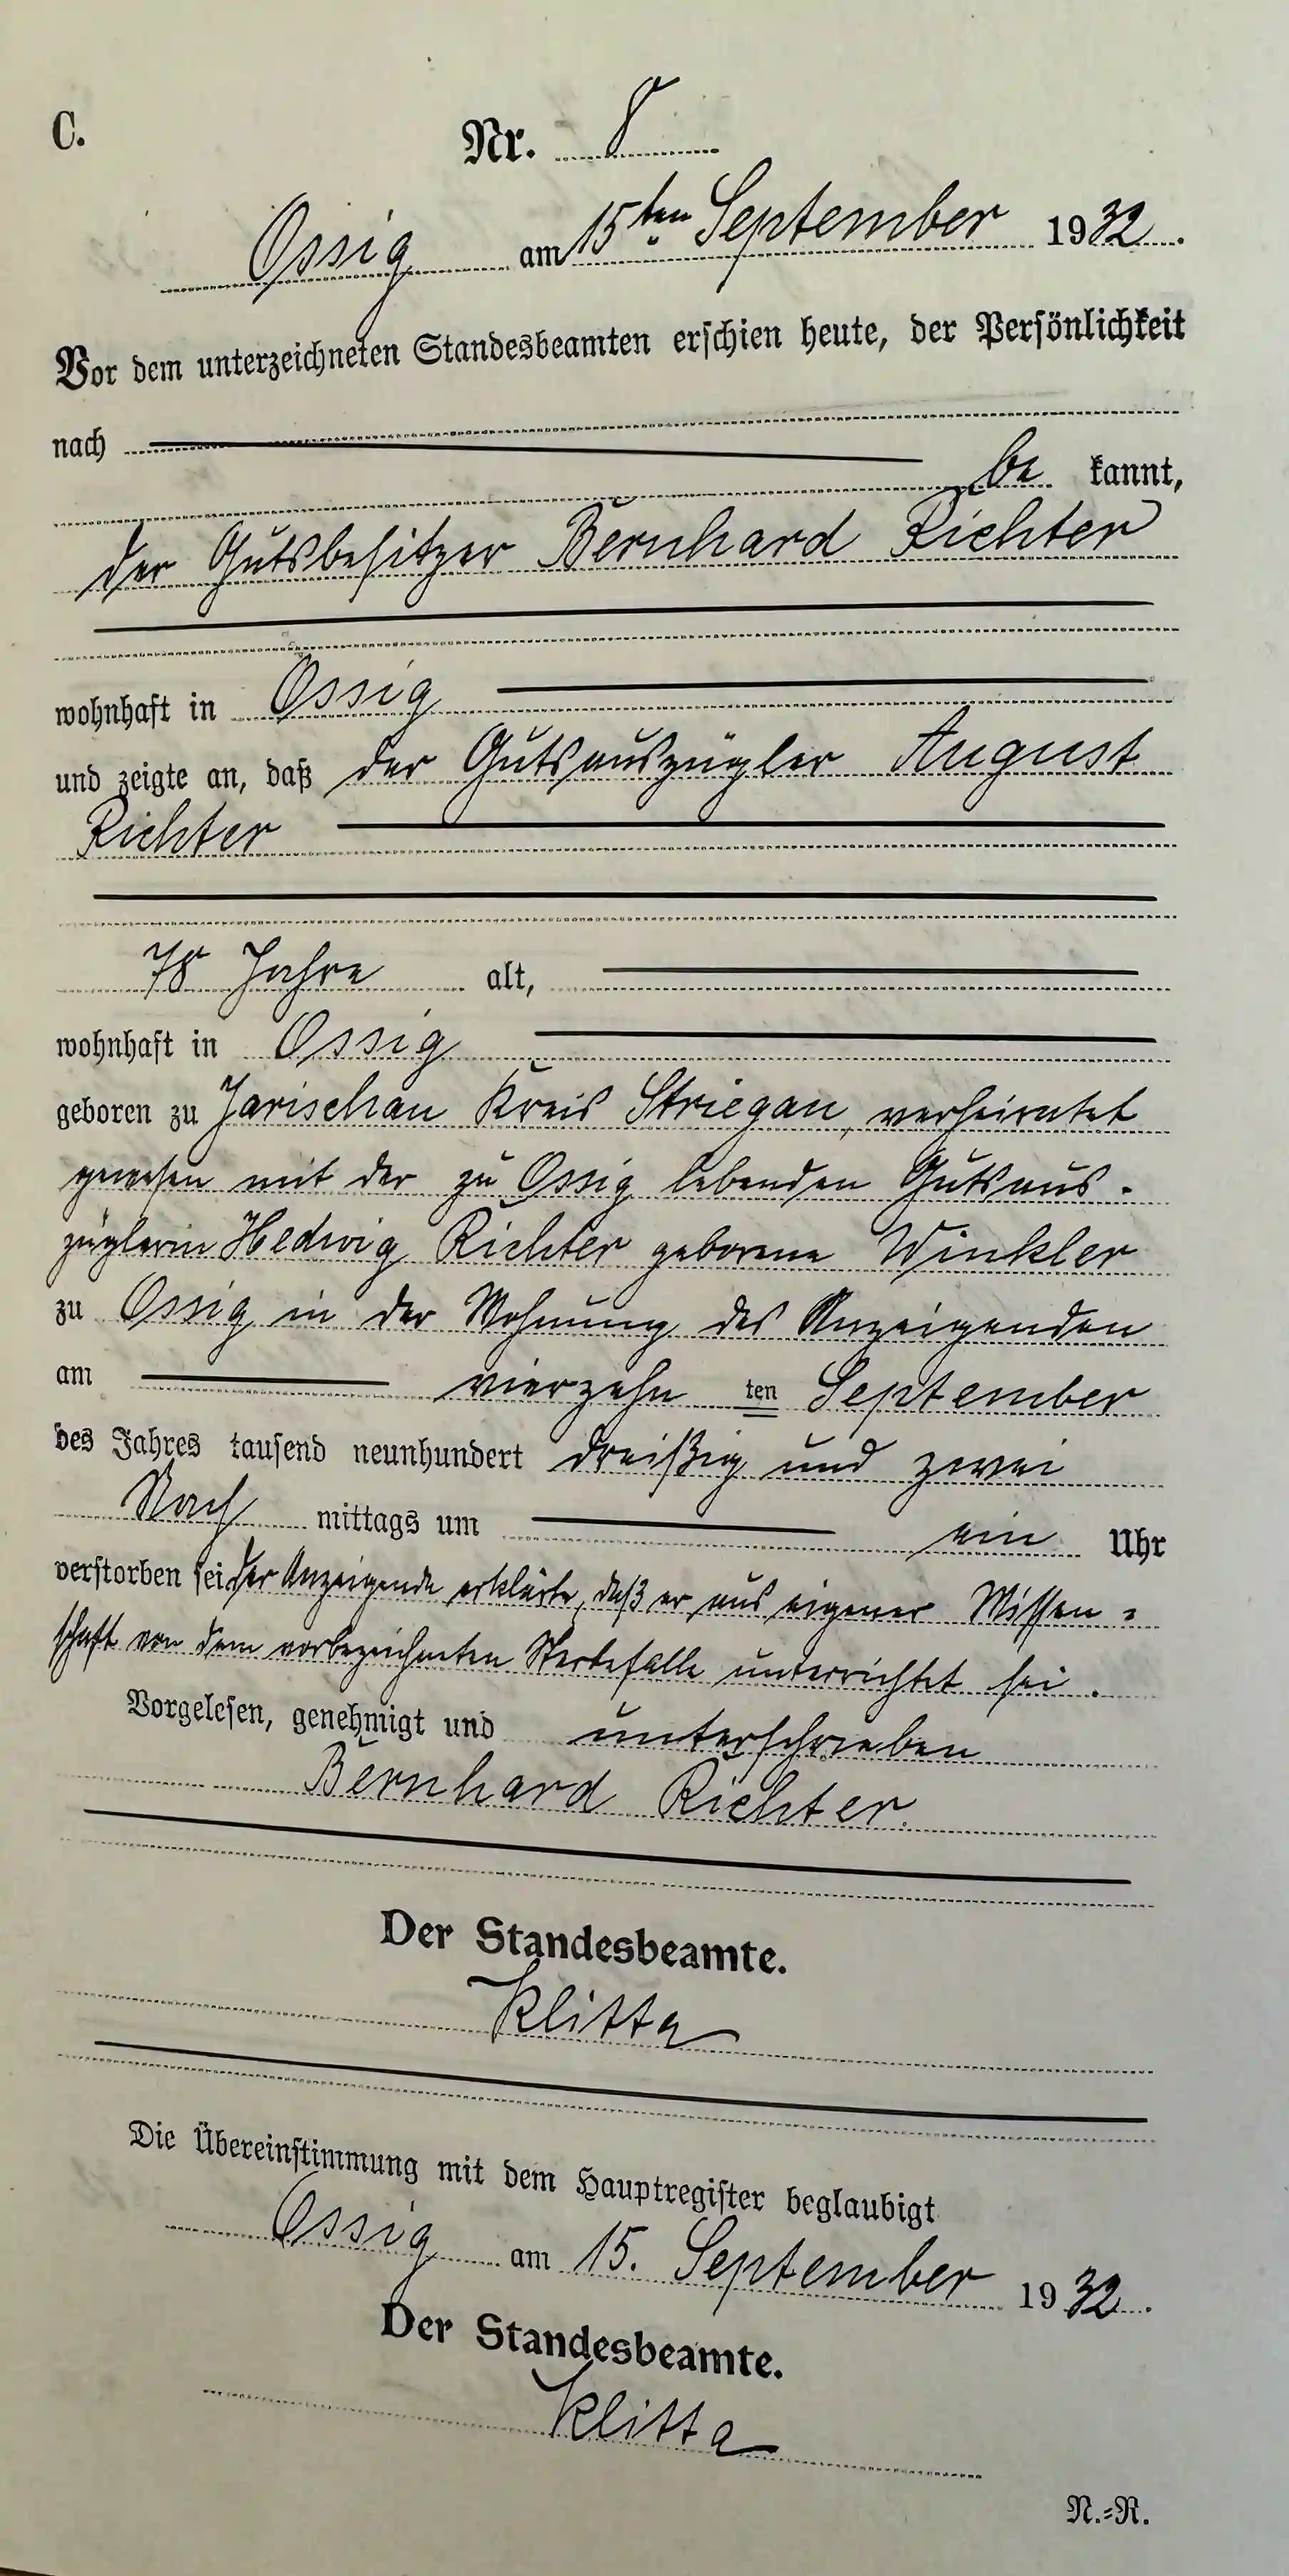 C.
Nr. 8
Ossig am 15ten September 1932.
Vor dem unterzeichneten Standesbeamten erschien heute, der Persönlichkeit
nach
be kannt,
der Gutsbesitzer Bernhard Richter
wohnhaft in Ossig
und zeigte an, daß der Gutsauszügler August
Richter
78 Jahre alt,
wohnhaft in Ossig
geboren zu Jarischau Kreis Striegau, verheiratet
gewesen mit der zu Ossig lebenden Gutsaus-
züglerin Hedwig Richter geborene Winkler
zu Ossig in der Wohnung des Anzeigenden
am vierzehn ten September
des Jahres tausend neunhundert dreißig und zwei
Nach mittags um ein Uhr
verstorben sei der Anzeigende erklärte, daß er aus eigener Wissen=
schaft von dem vorbezeichneten Sterbefalle unterrichtet sei.
Vorgelesen, genehmigt und unterschrieben
Bernhard Richter.
Der Standesbeamte.
Klitta
Die Übereinstimmung mit dem Hauptregister beglaubigt
Ossig am 15. September 1932.
Der Standesbeamte.
Klitta
N.=R.